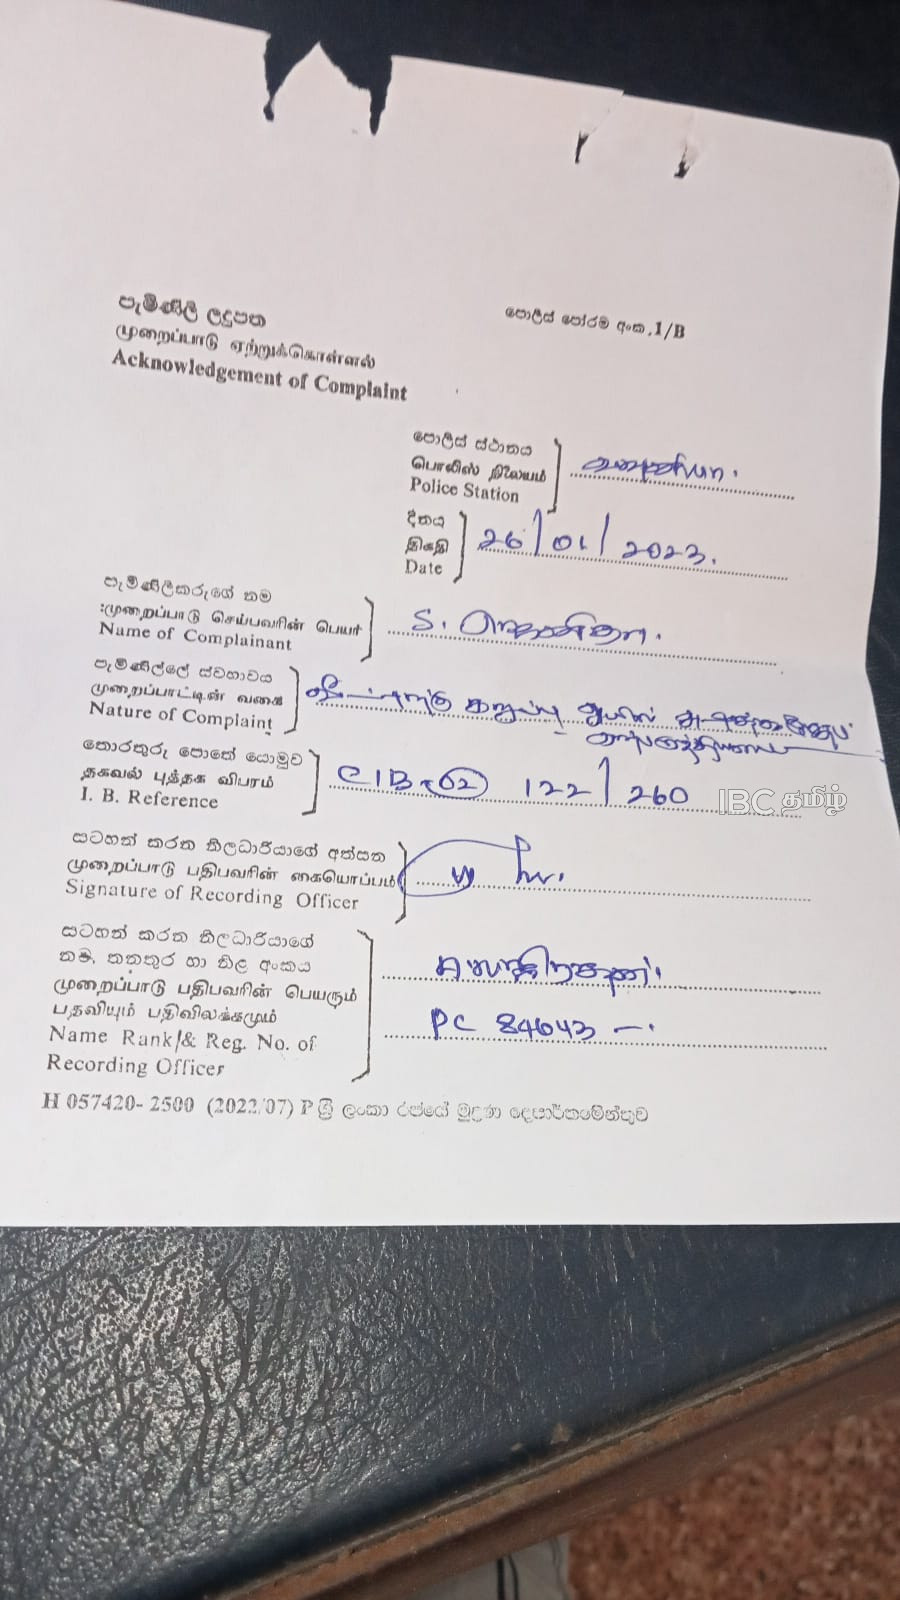 පැමිණිලි ලදුපත
පොලිස් පෝරම අංක.1/B
முறைப்பாடு ஏற்றுக்கொள்ளல்
Acknowledgement of Complaint
පොලිස් ස්ථානය
பொலிஸ் நிலையம்
Police Station
දිනය
திகதி
Date
26/01/2023.
පැමිණිලිකරුගේ නම
:முறைப்பாடு செய்பவரின் பெயர்
Name of Complainant
S.
පැමිණිල්ලේ ස්වභාවය
முறைப்பாட்டின் வகை
Nature of Complaint
கறுப்பு
තොරතුරු පොතේ යොමුව
தகவல் புத்தக விபரம்
I. B. Reference
CIB 02 122/260
IBC தமிழ்
සටහන් කරන නිලධාරියාගේ අත්සන
முறைப்பாடு பதிபவரின் கையொப்பம்
Signature of Recording Officer
සටහන් කරන නිලධාරියාගේ
නම, තනතුර හා නිල අංකය
முறைப்பாடு பதிபவரின் பெயரும்
பதவியும் பதிவிலக்கமும்
Name Rank/& Reg. No. of
Recording Officer
PC 84643
H 057420- 2500 (2022/07) P ශ්‍රී ලංකා රජයේ මුද්‍රණ දෙපාර්තමේන්තුව